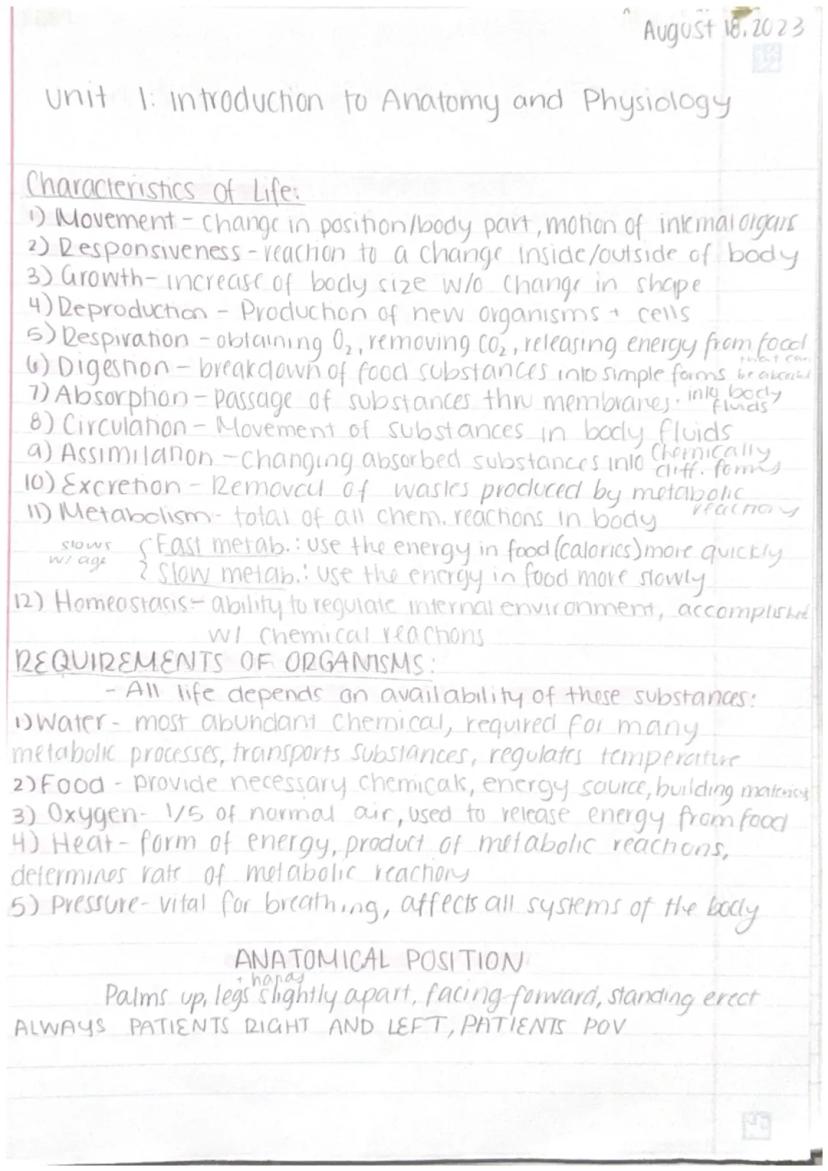 August 18, 2023
Unit 1: Introduction to Anatomy and Physiology
Characteristics of Life:
1) Movement - change in position/body part, motion of internal organs
2) Responsiveness - reaction to a change inside/outside of body
3) Growth - increase of body size w/o change in shape
4) Reproduction - Production of new organisms + cells
5) Respiration - obtaining O₂, removing CO₂, releasing energy from food
6) Digestion - breakdown of food substances into simple forms that can be absorbed
7) Absorption - Passage of substances thru membranes. into body fluids
8) Circulation - Movement of substances in body fluids
9) Assimilation - Changing absorbed substances into chemically diff. forms
10) Excretion - Removal of wastes produced by metabolic reactions
11) Metabolism - total of all chem. reactions in body
slows w/ age { Fast metab.: use the energy in food (calories) more quickly
{ Slow metab.: use the energy in food more slowly
12) Homeostasis - ability to regulate internal environment, accomplished
w/ chemical reactions
REQUIREMENTS OF ORGANISMS:
- All life depends on availability of these substances:
1) Water - most abundant chemical, required for many
metabolic processes, transports substances, regulates temperature
2) Food - provide necessary chemicals, energy source, building materials
3) Oxygen - 1/5 of normal air, used to release energy from food
4) Heat - form of energy, product of metabolic reactions,
determines rate of metabolic reactions
5) Pressure - vital for breathing, affects all systems of the body
ANATOMICAL POSITION
Palms up, legs + hands slightly apart, facing forward, standing erect
ALWAYS PATIENTS RIGHT AND LEFT, PATIENTS POV